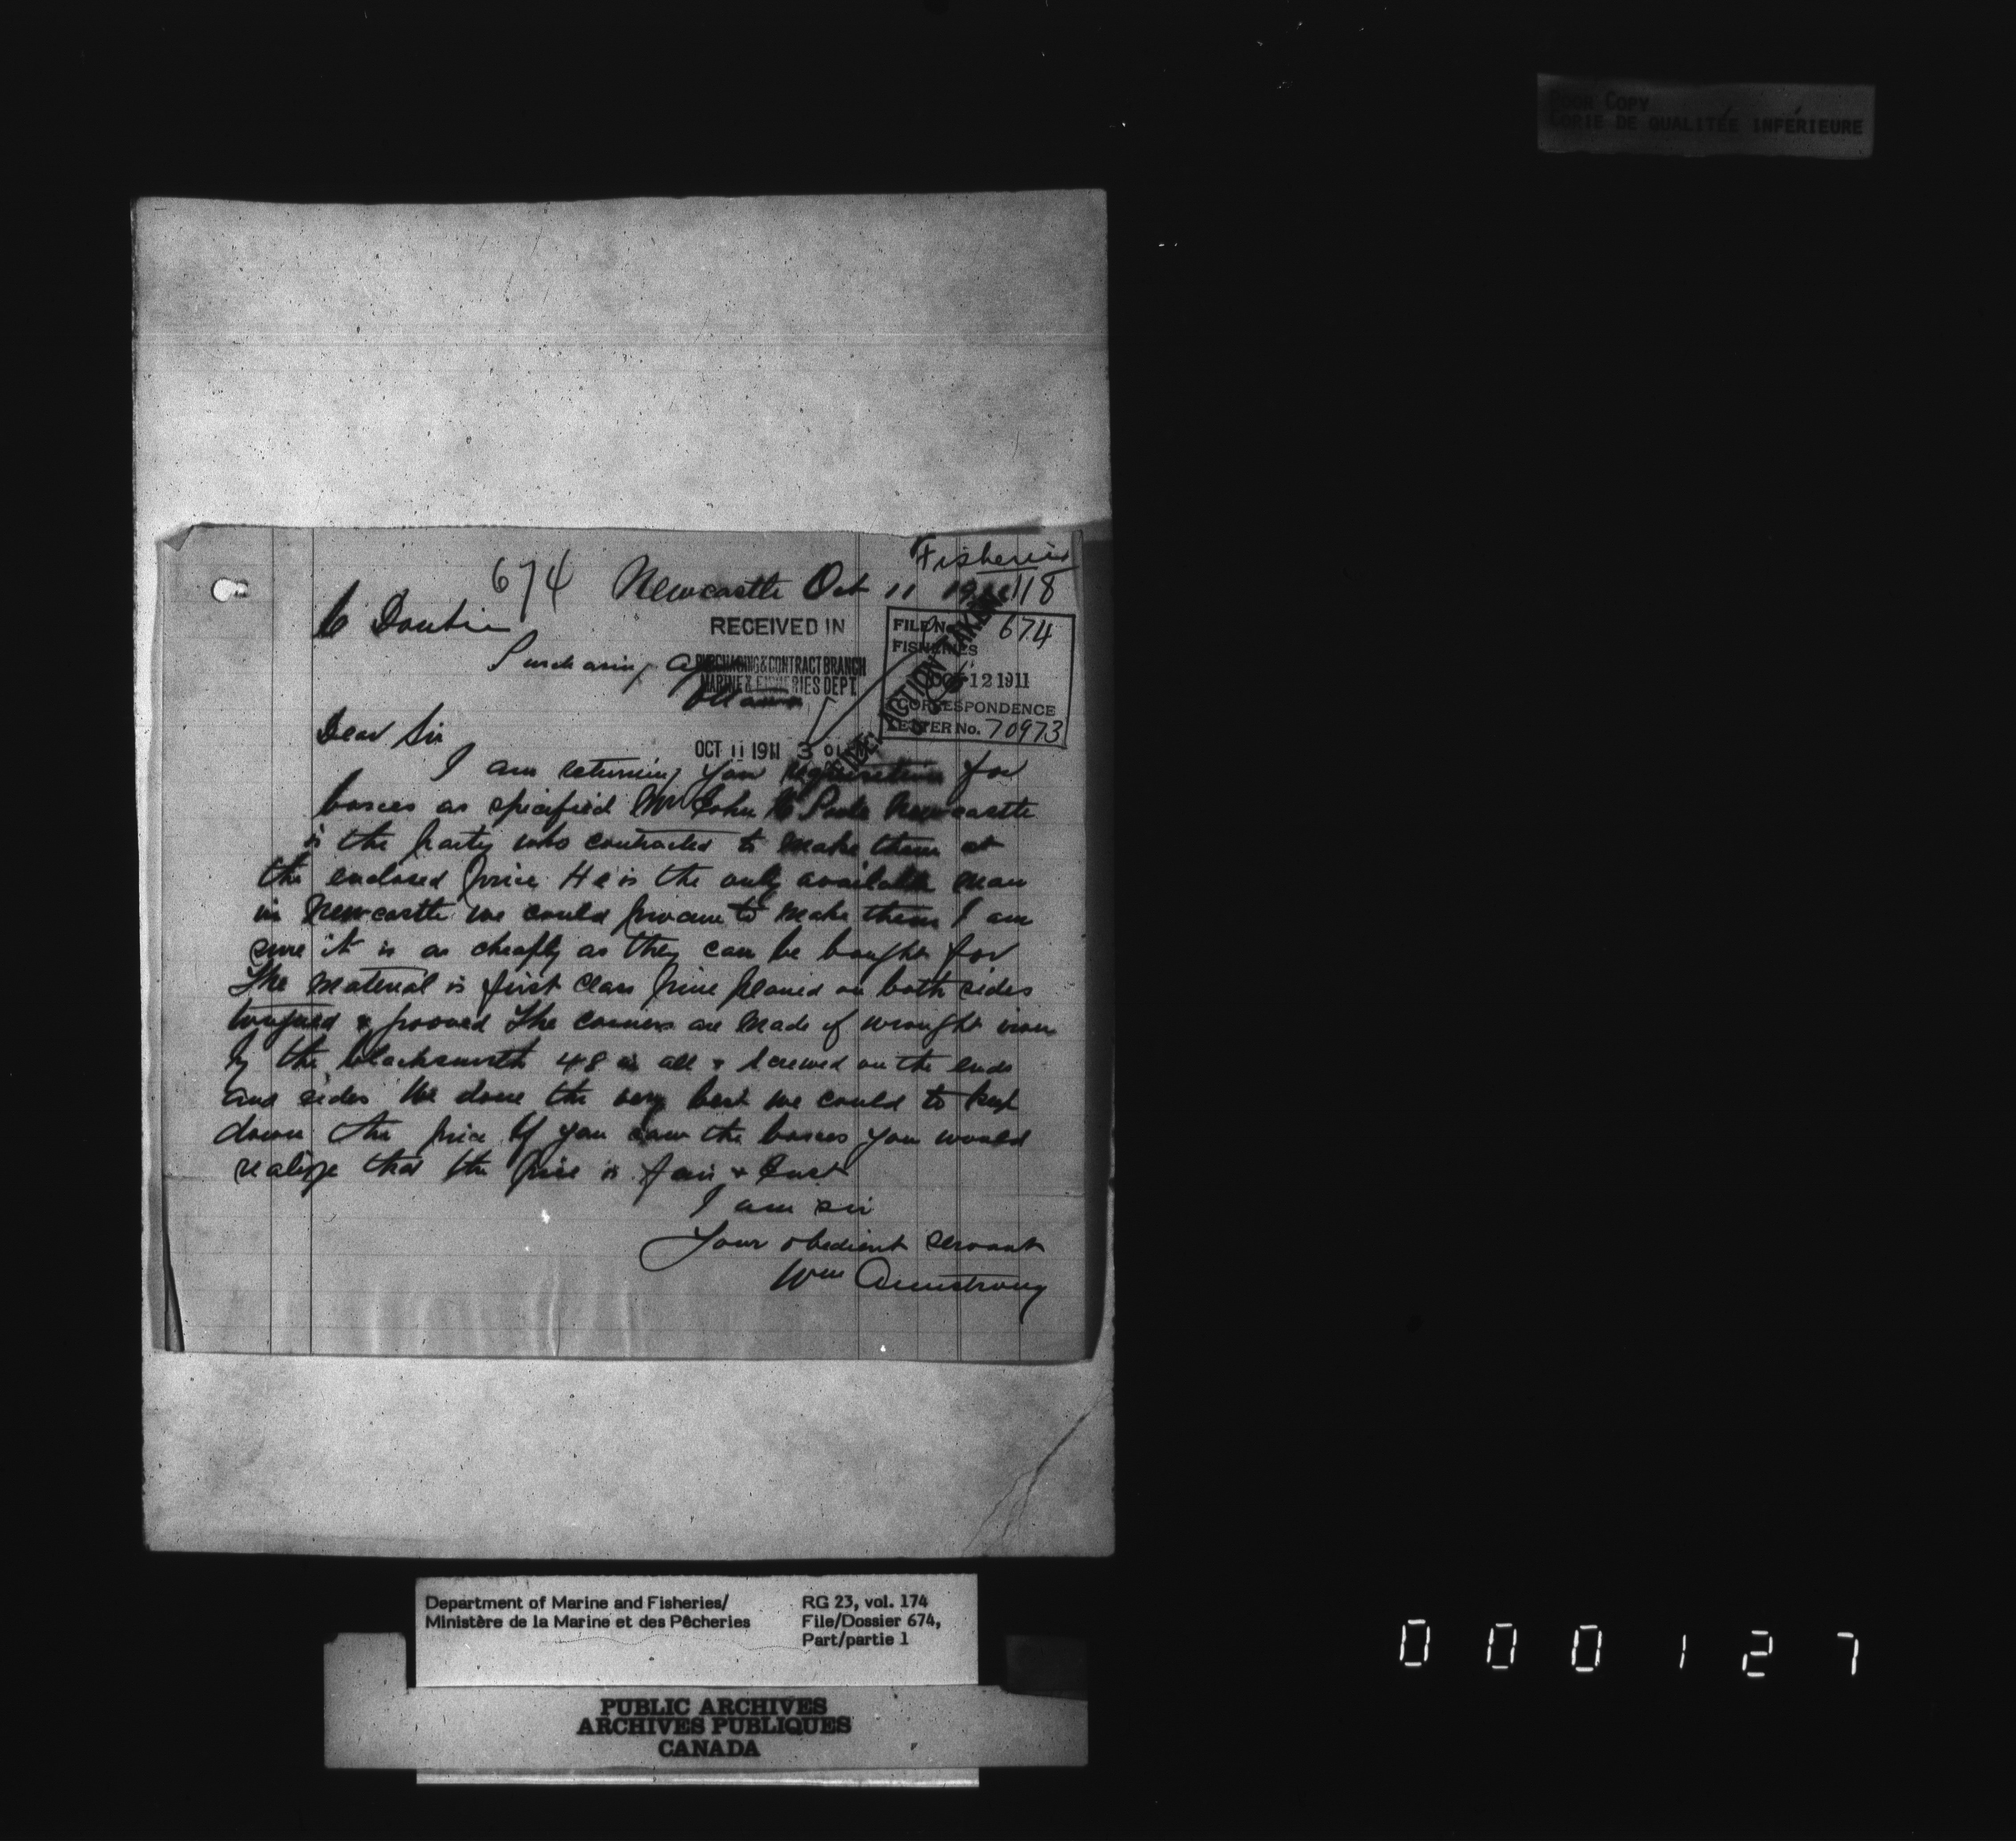 POOR COPY
COPIE DE QUALITÉE INFÉRIEURE
Fisheries
674 Newcastle Oct 11 1911
118
C Doutre
RECEIVED IN
Purchasing
PURCHASING & CONTRACT BRANCH
MARINE & FISHERIES DEPT.
Ottawa
OCT 11 1911 3
FILE No. 674
FISHERIES
OCT 12 1911
CORRESPONDENCE
LETTER No. 70973
ACTION TAKEN
Dear Sir
I am returning you requisition for
boxes as specified Mr John Newcastle
is the party who contracted to make them at
the enclosed price He is the only available man
in Newcastle we could procure to make them I am
sure it is as cheaply as they can be bought for
The material is first class pine planed on both sides
tongued & grooved The corners are made of wrought iron
by the blacksmith 48 in all & screwed on the ends
and sides We done the very best we could to keep
down the price If you saw the boxes you would
realize that the price is fair & Just
I am sir
Your obedient servant
Wm Armstrong
Department of Marine and Fisheries/
Ministère de la Marine et des Pêcheries
RG 23, vol. 174
File/Dossier 674,
Part/partie 1
PUBLIC ARCHIVES
ARCHIVES PUBLIQUES
CANADA
000127